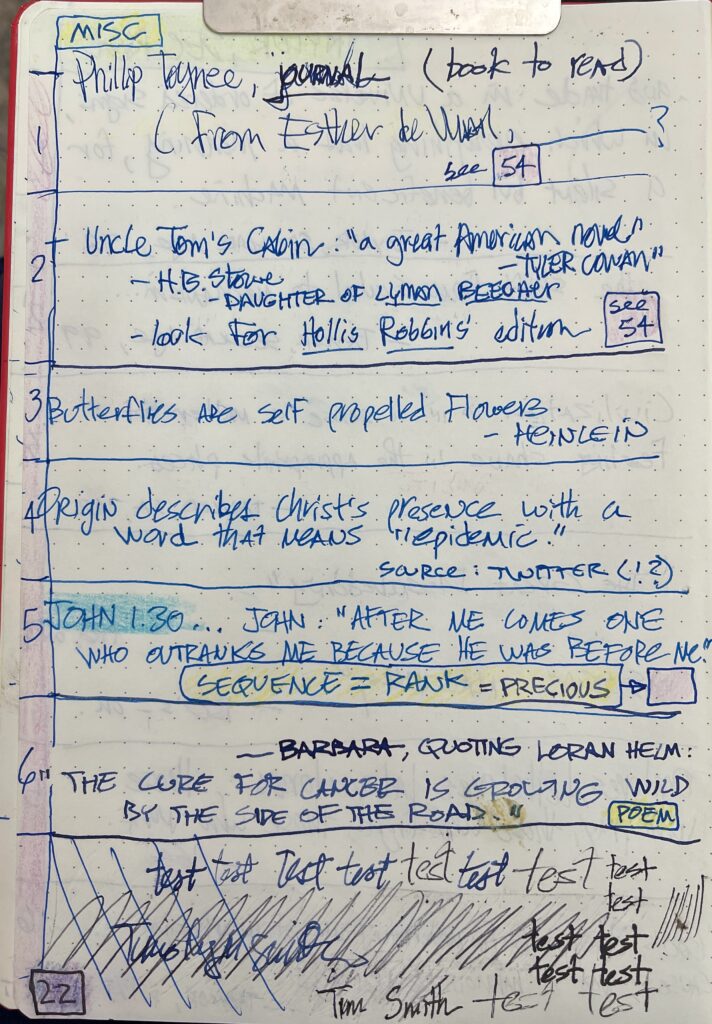 MISC
– Phillip Toynee, journal (book to read)
1 ( From Esther de Waal, ?
see 54
– Uncle Tom's Cabin: "a great American novel"
2 – TYLER COWAN"
– H.B. Stowe
– DAUGHTER OF LYMAN BEECHER
– look for Hollis Robbins' edition
see 54
3 Butterflies are self propelled Flowers
– HEINLEIN
4 Origin describes Christ's presence with a
word that means "epidemic."
source: TWITTER (!?)
5 JOHN 1.30... JOHN: "AFTER ME COMES ONE
WHO OUTRANKS ME BECAUSE HE WAS BEFORE ME."
SEQUENCE = RANK = PRECIOUS
— BARBARA, QUOTING LORAN HELM:
6 "THE CURE FOR CANCER IS GROWING WILD
BY THE SIDE OF THE ROAD."
POEM
test test Test test test test test test
test
test test
test test
22 Tim Smith test test